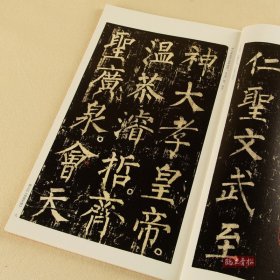 仁聖文武至
神大孝皇帝。
温恭濬哲。齊
聖廣泉。會天